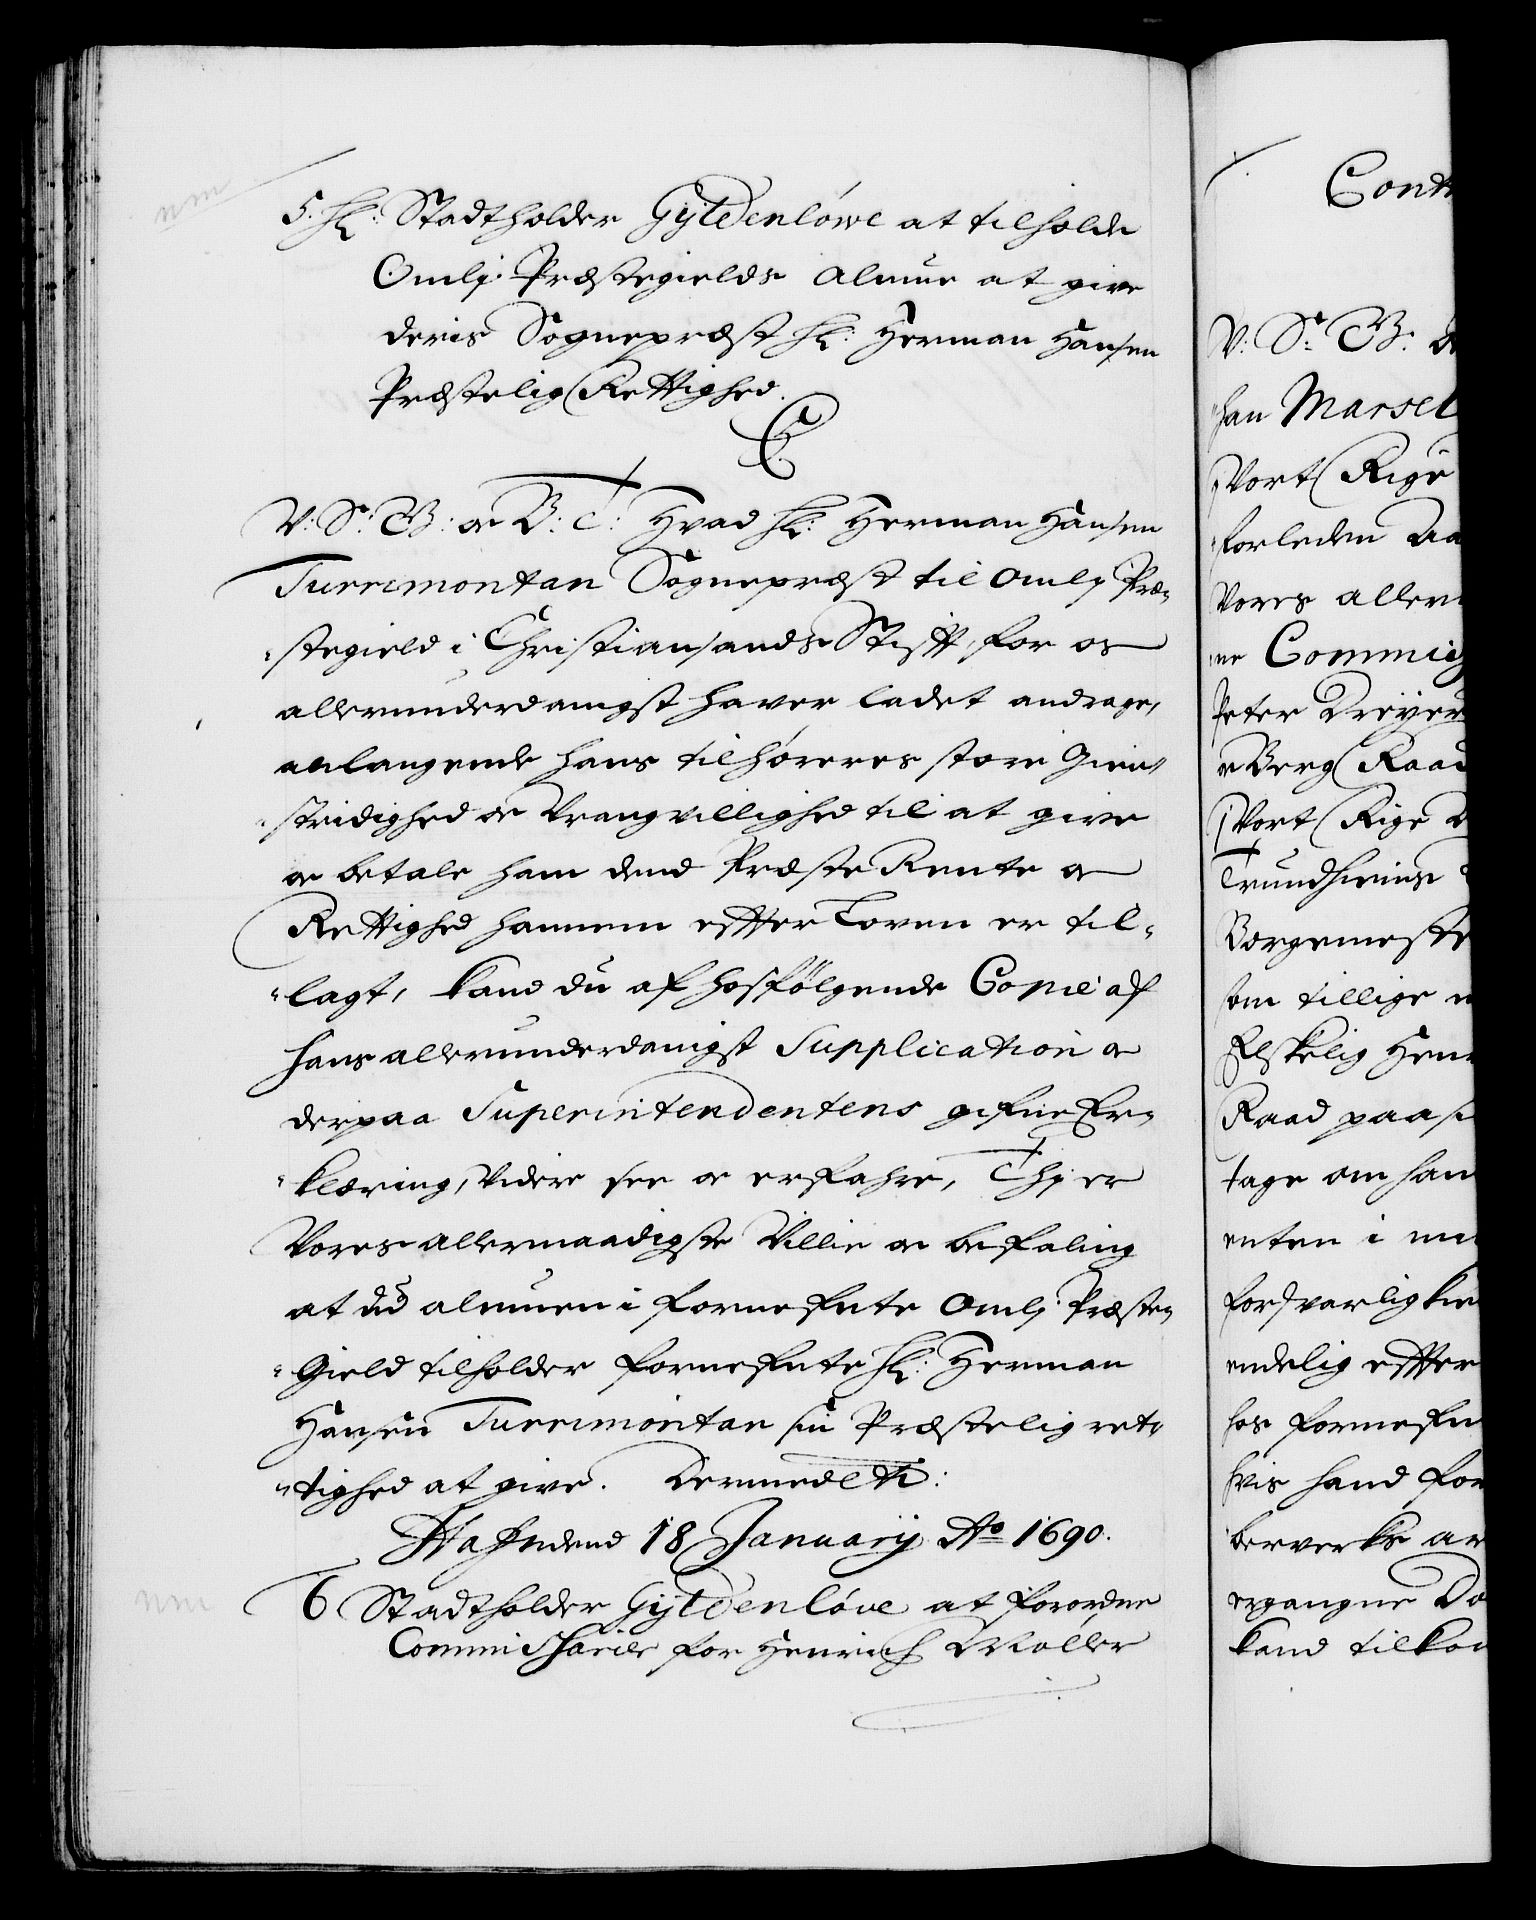 5. Hr: Stadtholder Gyldenlöwe at tilholde
Omlj Præstegields Almue at give
deris Sognepræst Hr: Herman Hansen
Præstelig Rettighed.
C
V: S: G: oc B: T: Hvad Hr: Herman Hansen
Turrimontan Sognepræst til Omlj Præ-
stegield i Christiansands Stifft, for os
allerunderdanigst haver ladet andrage,
anlangende hans tilhöreres store Gien-
stridighed oc Vrangvillighed til at give
oc betale ham dend Præste Rente oc
Rettighed hannem effter Loven er til-
lagt, kand du af hosfölgende Copie af
hans allerunderdanigst Supplication oc
derpaa Superintendentens gifne Er-
klæring, videre see oc erfahre, Thj er
Vores allernaadigste Villie oc befaling
at du almuen i fornefnte Omlj Præste-
Gield tilholder fornefnte Hr: Herman
Hansen Turrimontan sin Præstelig ret-
tighed at give. Dermed etc:
Hafniæ dend 18 January Ao 1690.
6 Stadtholder Gyldenlöve at forordne
Commissharier for Henrich Möller
Cont
V: S: G:
han Marsel
Vort Rige
forleden Aa
Vores aller
ne Commiss
Peter Dreyer
oc Berg Raad
Vort Rige
Trundhiems
Borgemeste
som tillige
Elskelig Hen
Raad paa si
tage om han
enten i
forsvarlig
endelig effter
hos fornefn
hvis hand for
berverks ar
ergangne Do
kand tilkom